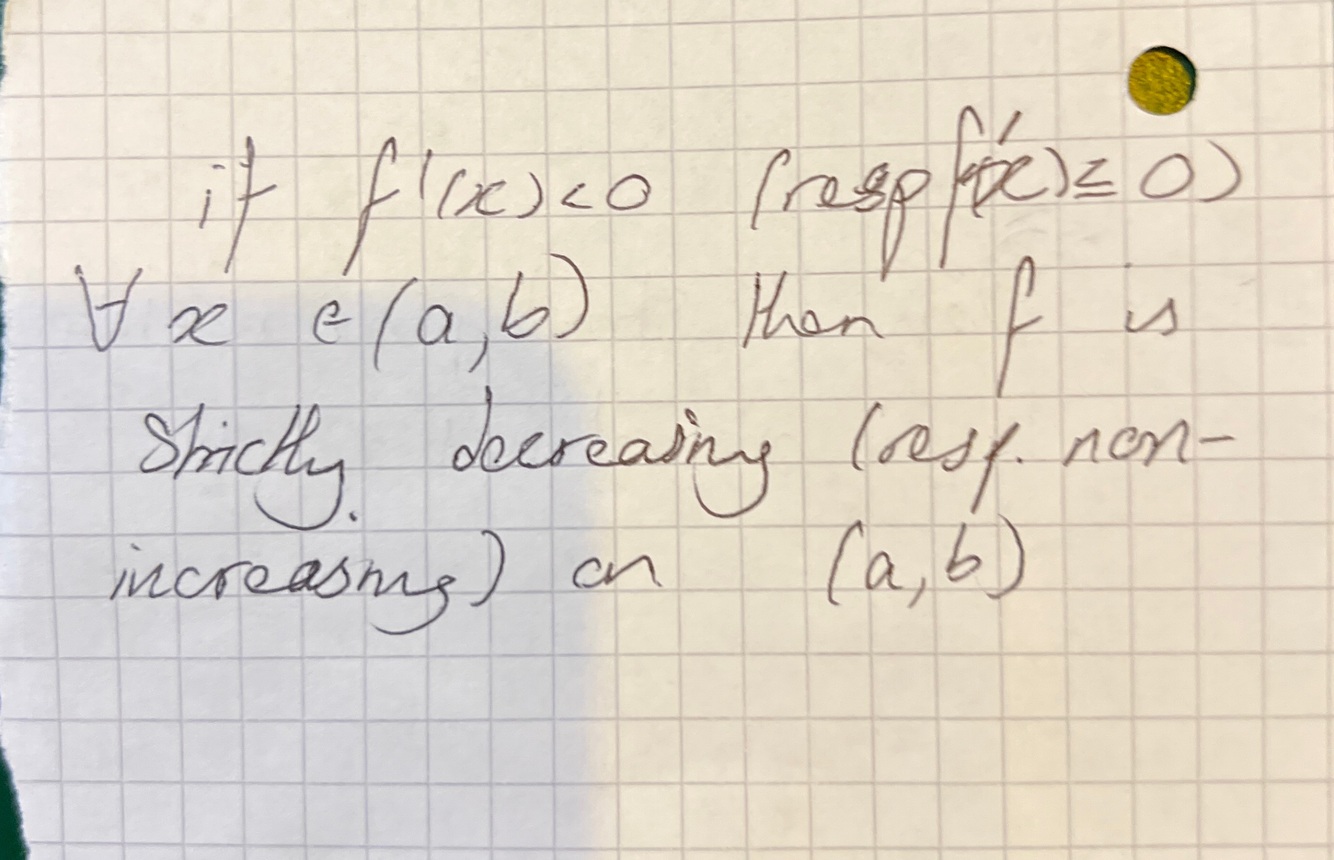 if f'(x)<0 (resp f'(x)≤0)
∀ x ∈ (a,b) then f is
Strictly decreasing (resp. non-
increasing) on (a,b)